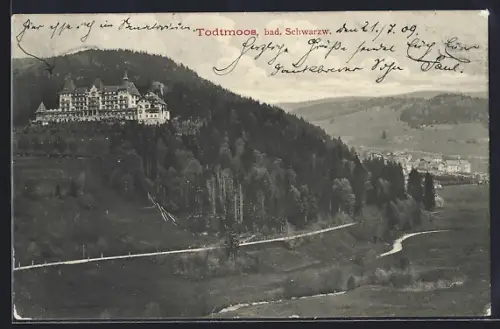 Hier oben im Sanatorium.
Todtmoos, bad. Schwarzw. den 21/7. 09.
Herzliche Grüße sendet Euch Euer
dankbarer Sohn Paul.